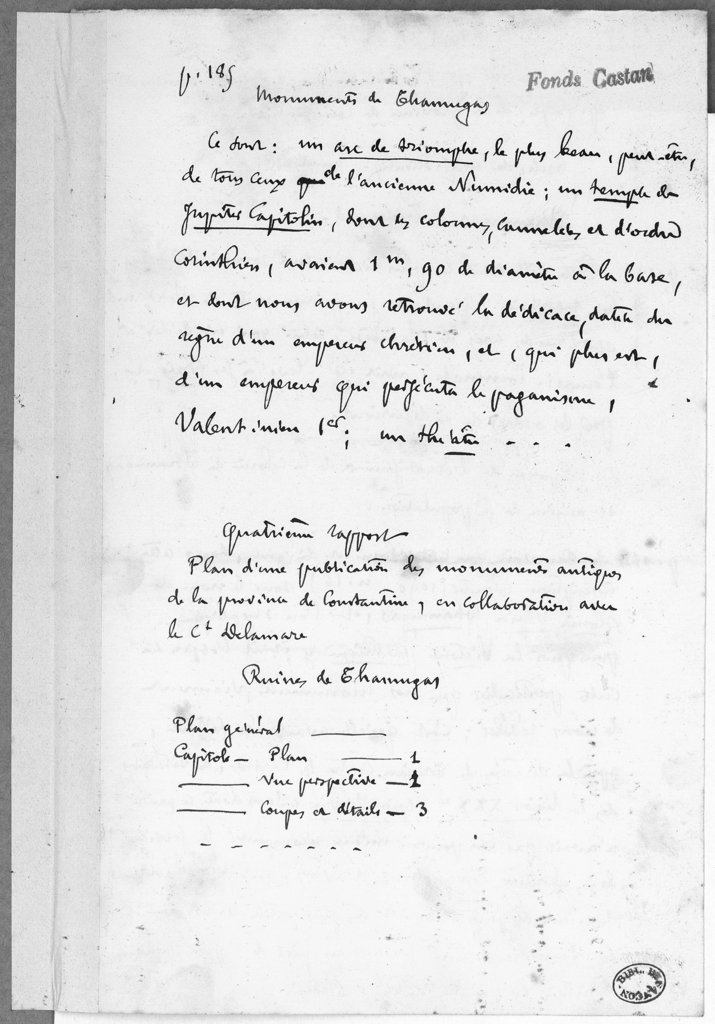 p. 185
Fonds Castan
Monuments de Thamugas
Ce sont : un arc de triomphe, le plus beau, peut-être,
de tous ceux de l'ancienne Numidie ; un temple de
Jupiter Capitolin, dont les colonnes, cannelées et d'ordre
Corinthien, avaient 1m, 90 de diamètre à la base,
et dont nous avons retrouvé la dédicace, datée du
règne d'un empereur chrétien, et, qui plus est,
d'un empereur qui persécuta le paganisme,
Valentinien 1er ; un théâtre - - .
Quatrième rapport
Plan d'une publication des monuments antiques
de la province de Constantine, en collaboration avec
le Ct Delamare
Ruines de Thamugas
Plan général ———
Capitole — Plan ——— 1
——— Vue perspective — 1
——— Coupes et détails — 3
- - - - - - -
BIBL. BESANÇON